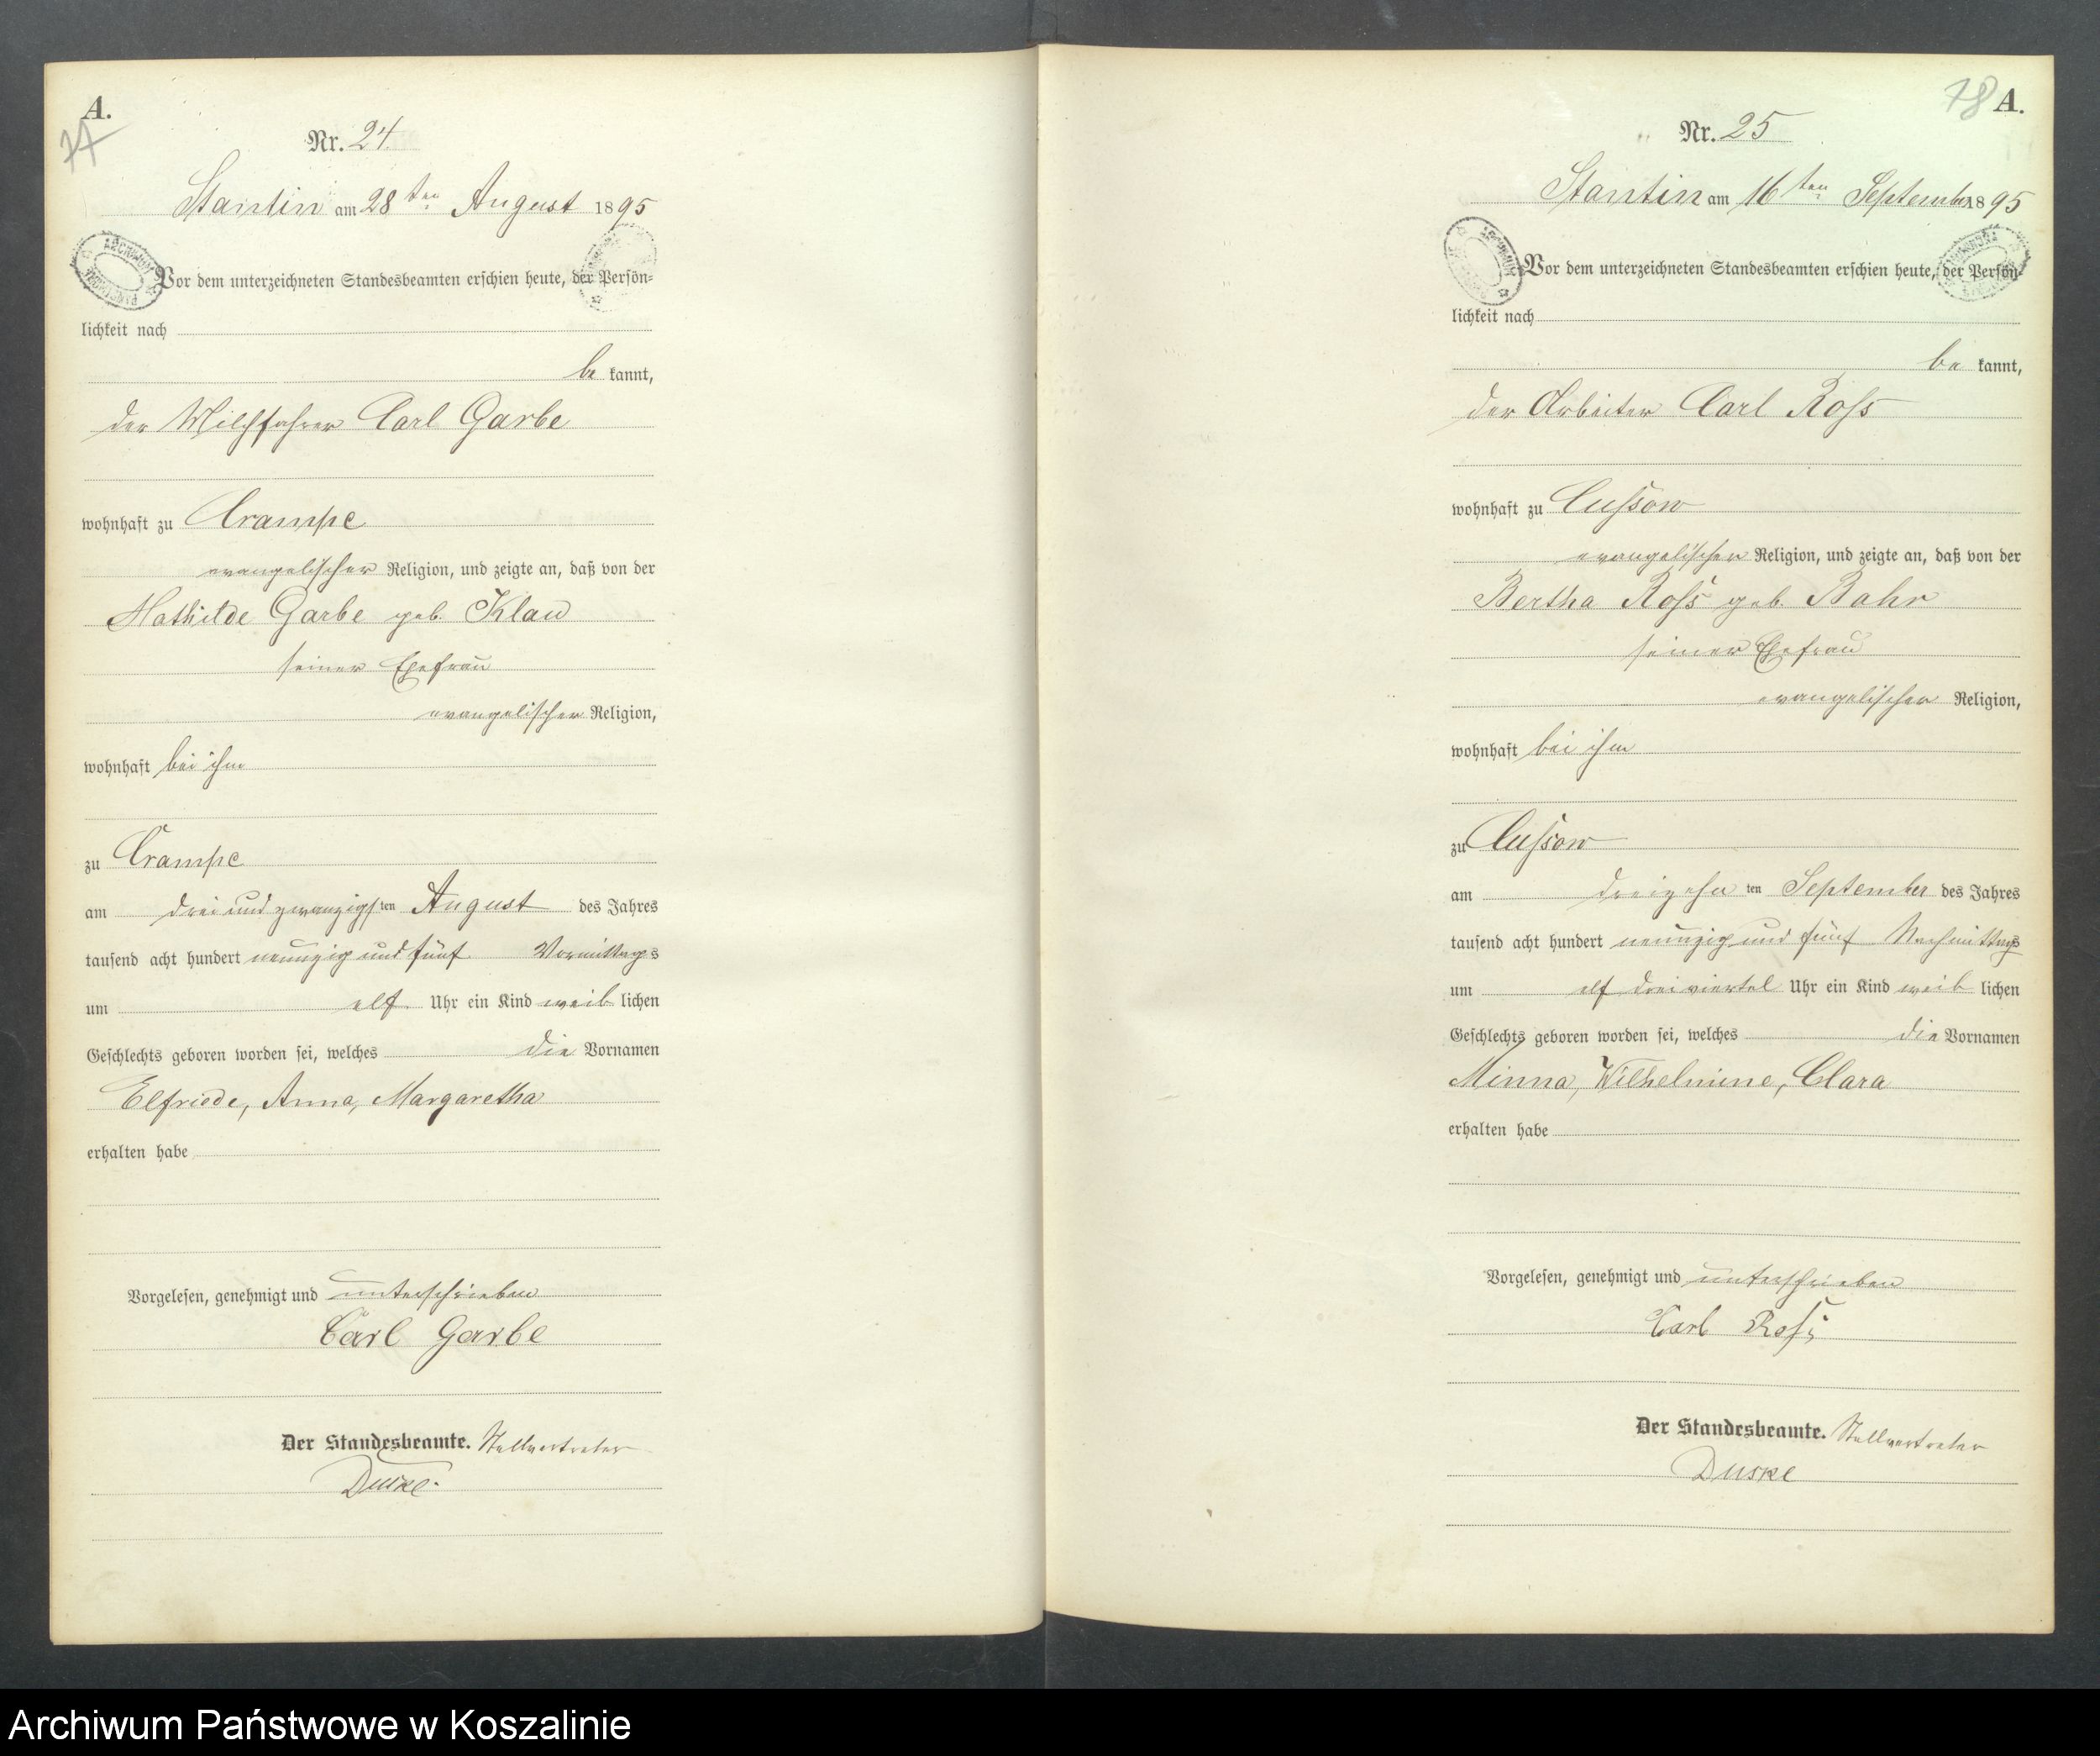 A.
77
Nr. 24
Stantin am 28ten August 1895
ARCHIWUM
Vor dem unterzeichneten Standesbeamten erschien heute, der Persön-
lichkeit nach
be kannt,
der Milchfahrer Carl Garbe
wohnhaft zu Crampe
evangelischer Religion, und zeigte an, daß von der
Mathilde Garbe geb. Klau
seiner Ehefrau
evangelischer Religion,
wohnhaft bei ihm
zu Crampe
am drei und zwanzigsten August des Jahres
tausend acht hundert neunzig und fünf Vormittags
um elf Uhr ein Kind weib lichen
Geschlechts geboren worden sei, welches die Vornamen
Elfriede, Anna, Margaretha
erhalten habe
Vorgelesen, genehmigt und unterschrieben
Carl Garbe
Der Standesbeamte. Stellvertreter
Duske.
78 A.
Nr. 25
Stantin am 16ten September 1895
ARCHIWUM
Vor dem unterzeichneten Standesbeamten erschien heute, der Persön-
lichkeit nach
be kannt,
der Arbeiter Carl Roß
wohnhaft zu Cussow
evangelischer Religion, und zeigte an, daß von der
Bertha Roß geb. Bahr
seiner Ehefrau
evangelischer Religion,
wohnhaft bei ihm
zu Cussow
am dreizehn ten September des Jahres
tausend acht hundert neunzig und fünf Nachmittags
um elf dreiviertel Uhr ein Kind weib lichen
Geschlechts geboren worden sei, welches die Vornamen
Minna, Wilhelmine, Clara
erhalten habe
Vorgelesen, genehmigt und unterschrieben
Carl Roß
Der Standesbeamte. Stellvertreter
Duske
Archiwum Państwowe w Koszalinie